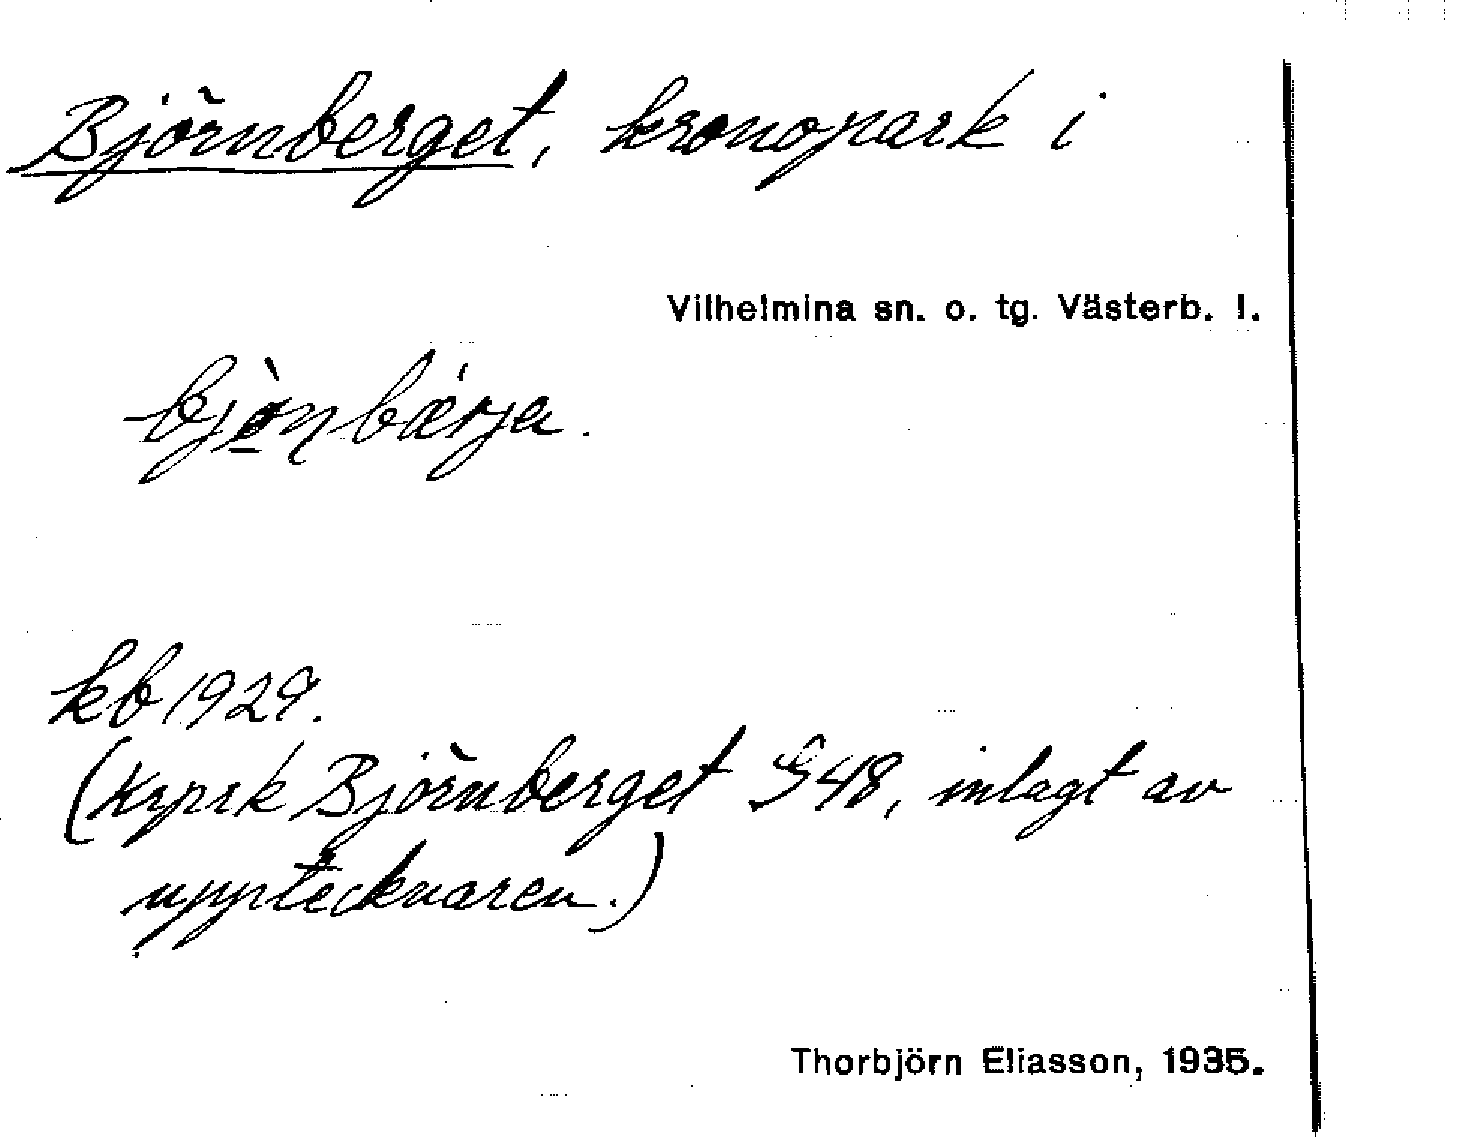 Björnberget, kronopark i
Vilhelmina sn. o. tg. Västerb. l.
bjö̀ṇbǽrja.
kb 1929.
(Krprk Björnberget S48, inlagt av
upptecknaren.)
Thorbjörn Eliasson, 1935.